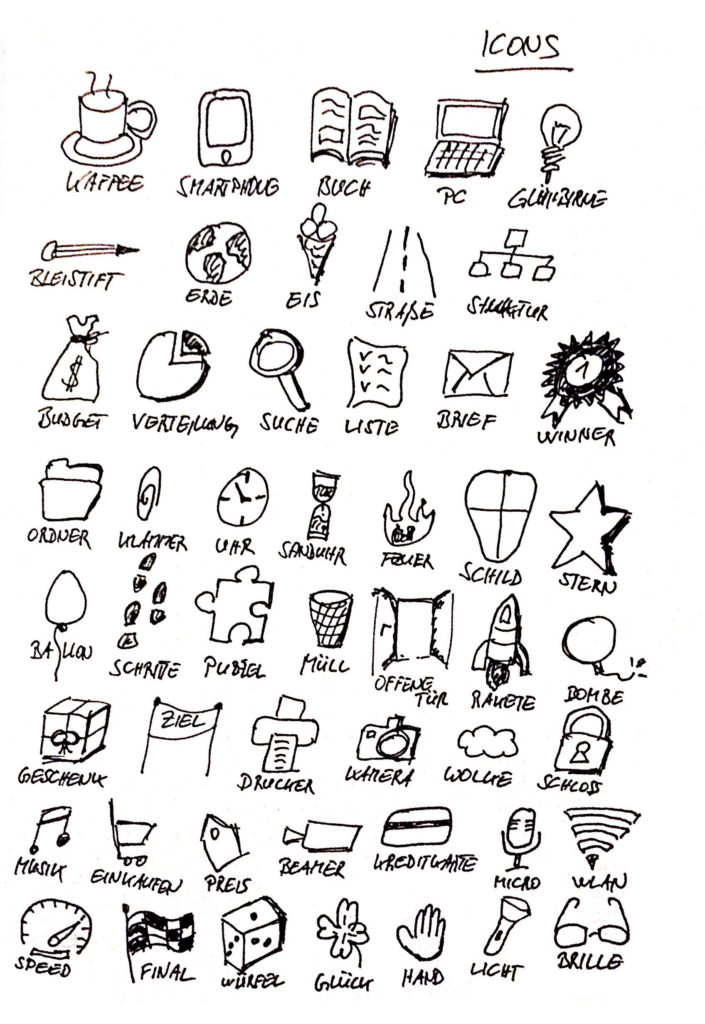 ICONS
KAFFEE
SMARTPHONE
BUCH
PC
GLÜHBIRNE
BLEISTIFT
ERDE
EIS
STRAßE
STRUKTUR
$
1
BUDGET
VERTEILUNG
SUCHE
LISTE
BRIEF
WINNER
ORDNER
KLAMMER
UHR
SANDUHR
FEUER
SCHILD
STERN
BALLON
SCHRITTE
PUZZEL
MÜLL
OFFENE
TÜR
RAKETE
BOMBE
ZIEL
GESCHENK
DRUCKER
KAMERA
WOLKE
SCHLOSS
MUSIK
EINKAUFEN
PREIS
BEAMER
KREDITKARTE
MICRO
WLAN
SPEED
FINAL
WÜRFEL
GLÜCK
HAND
LICHT
BRILLE